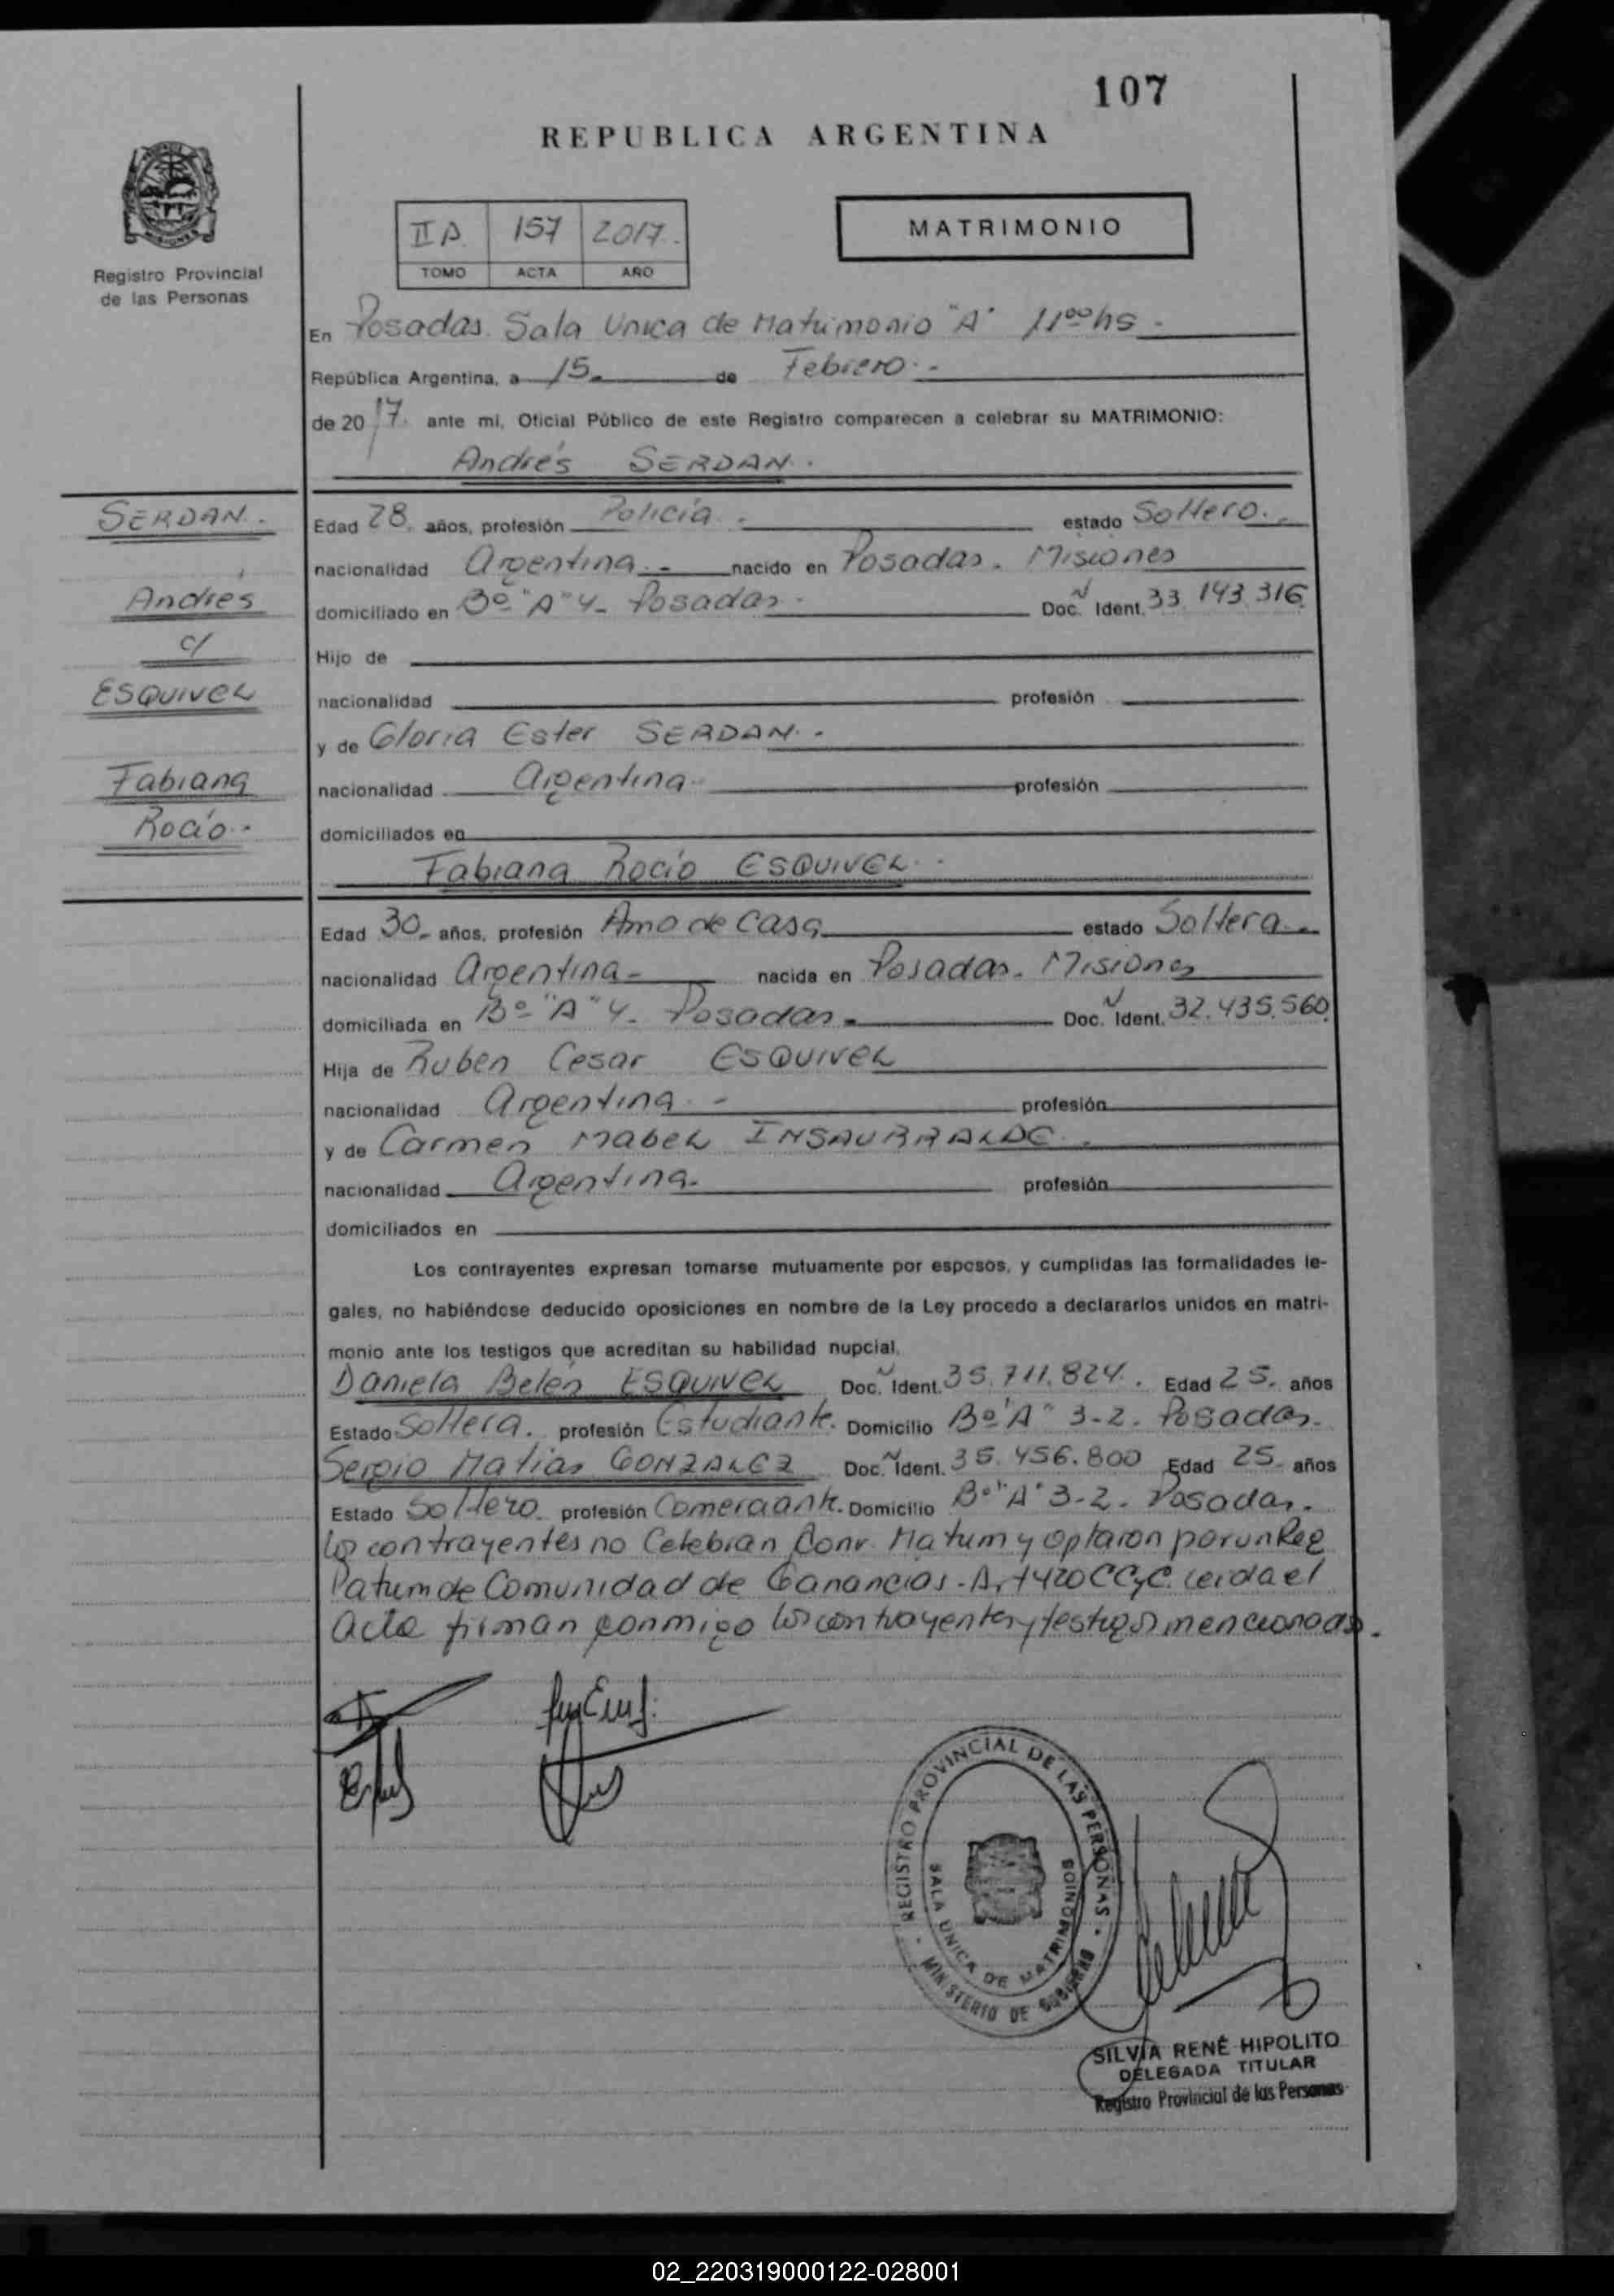 107
REPUBLICA ARGENTINA
MISIONES
Registro Provincial
de las Personas
II A. 157 2017.
TOMO ACTA AÑO
MATRIMONIO
En Posadas. Sala Unica de Matrimonio "A" 11ºº hs -
República Argentina, a 15 de Febrero. -
de 2017. ante mi, Oficial Público de este Registro comparecen a celebrar su MATRIMONIO:
Andrés SERDAN.
SERDAN.
Andrés
c/
ESQUIVEL
Fabiana
Rocío.-
Edad 28. años, profesión Policía. estado Soltero.
nacionalidad Argentina.- nacido en Posadas. Misiones
domiciliado en Bº "A" 4- Posadas. Doc. Ident. 33.143.316
Hijo de
nacionalidad profesión
y de Gloria Ester SERDAN. -
nacionalidad Argentina profesión
domiciliados en
Fabiana Rocío ESQUIVEL. -
Edad 30- años, profesión Amo de Casa estado Soltera.
nacionalidad Argentina- nacida en Posadas. Misiones
domiciliada en Bº "A" 4. Posadas- Doc. Ident. 32.435.560
Hija de Ruben Cesar ESQUIVEL
nacionalidad Argentina. - profesión
y de Carmen Mabel INSAURRALDE.
nacionalidad Argentina. profesión
domiciliados en
Los contrayentes expresan tomarse mutuamente por esposos, y cumplidas las formalidades le-
gales, no habiéndose deducido oposiciones en nombre de la Ley procedo a declararlos unidos en matri-
monio ante los testigos que acreditan su habilidad nupcial.
Daniela Belén ESQUIVEL Doc. Ident. 35.711.824. Edad 25. años
Estado Soltera. profesión Estudiante. Domicilio Bº "A" 3-2. Posadas.
Sergio Matías GONZALEZ Doc. Ident. 35.456.800 Edad 25. años
Estado Soltero. profesión Comerciante. Domicilio Bº "A" 3-2. Posadas.
Los contrayentes no Celebran Conv. Matrim y optaron por un Reg
Patrim de Comunidad de Ganancias. Art 420 CCyC. Leida el
Acta firman conmigo los contrayentes y testigos mencionados.
REGISTRO PROVINCIAL DE LAS PERSONAS
SALA UNICA DE MATRIMONIOS
MINISTERIO DE GOBIERNO
SILVIA RENÉ HIPOLITO
DELEGADA TITULAR
Registro Provincial de las Personas
02_220319000122-028001